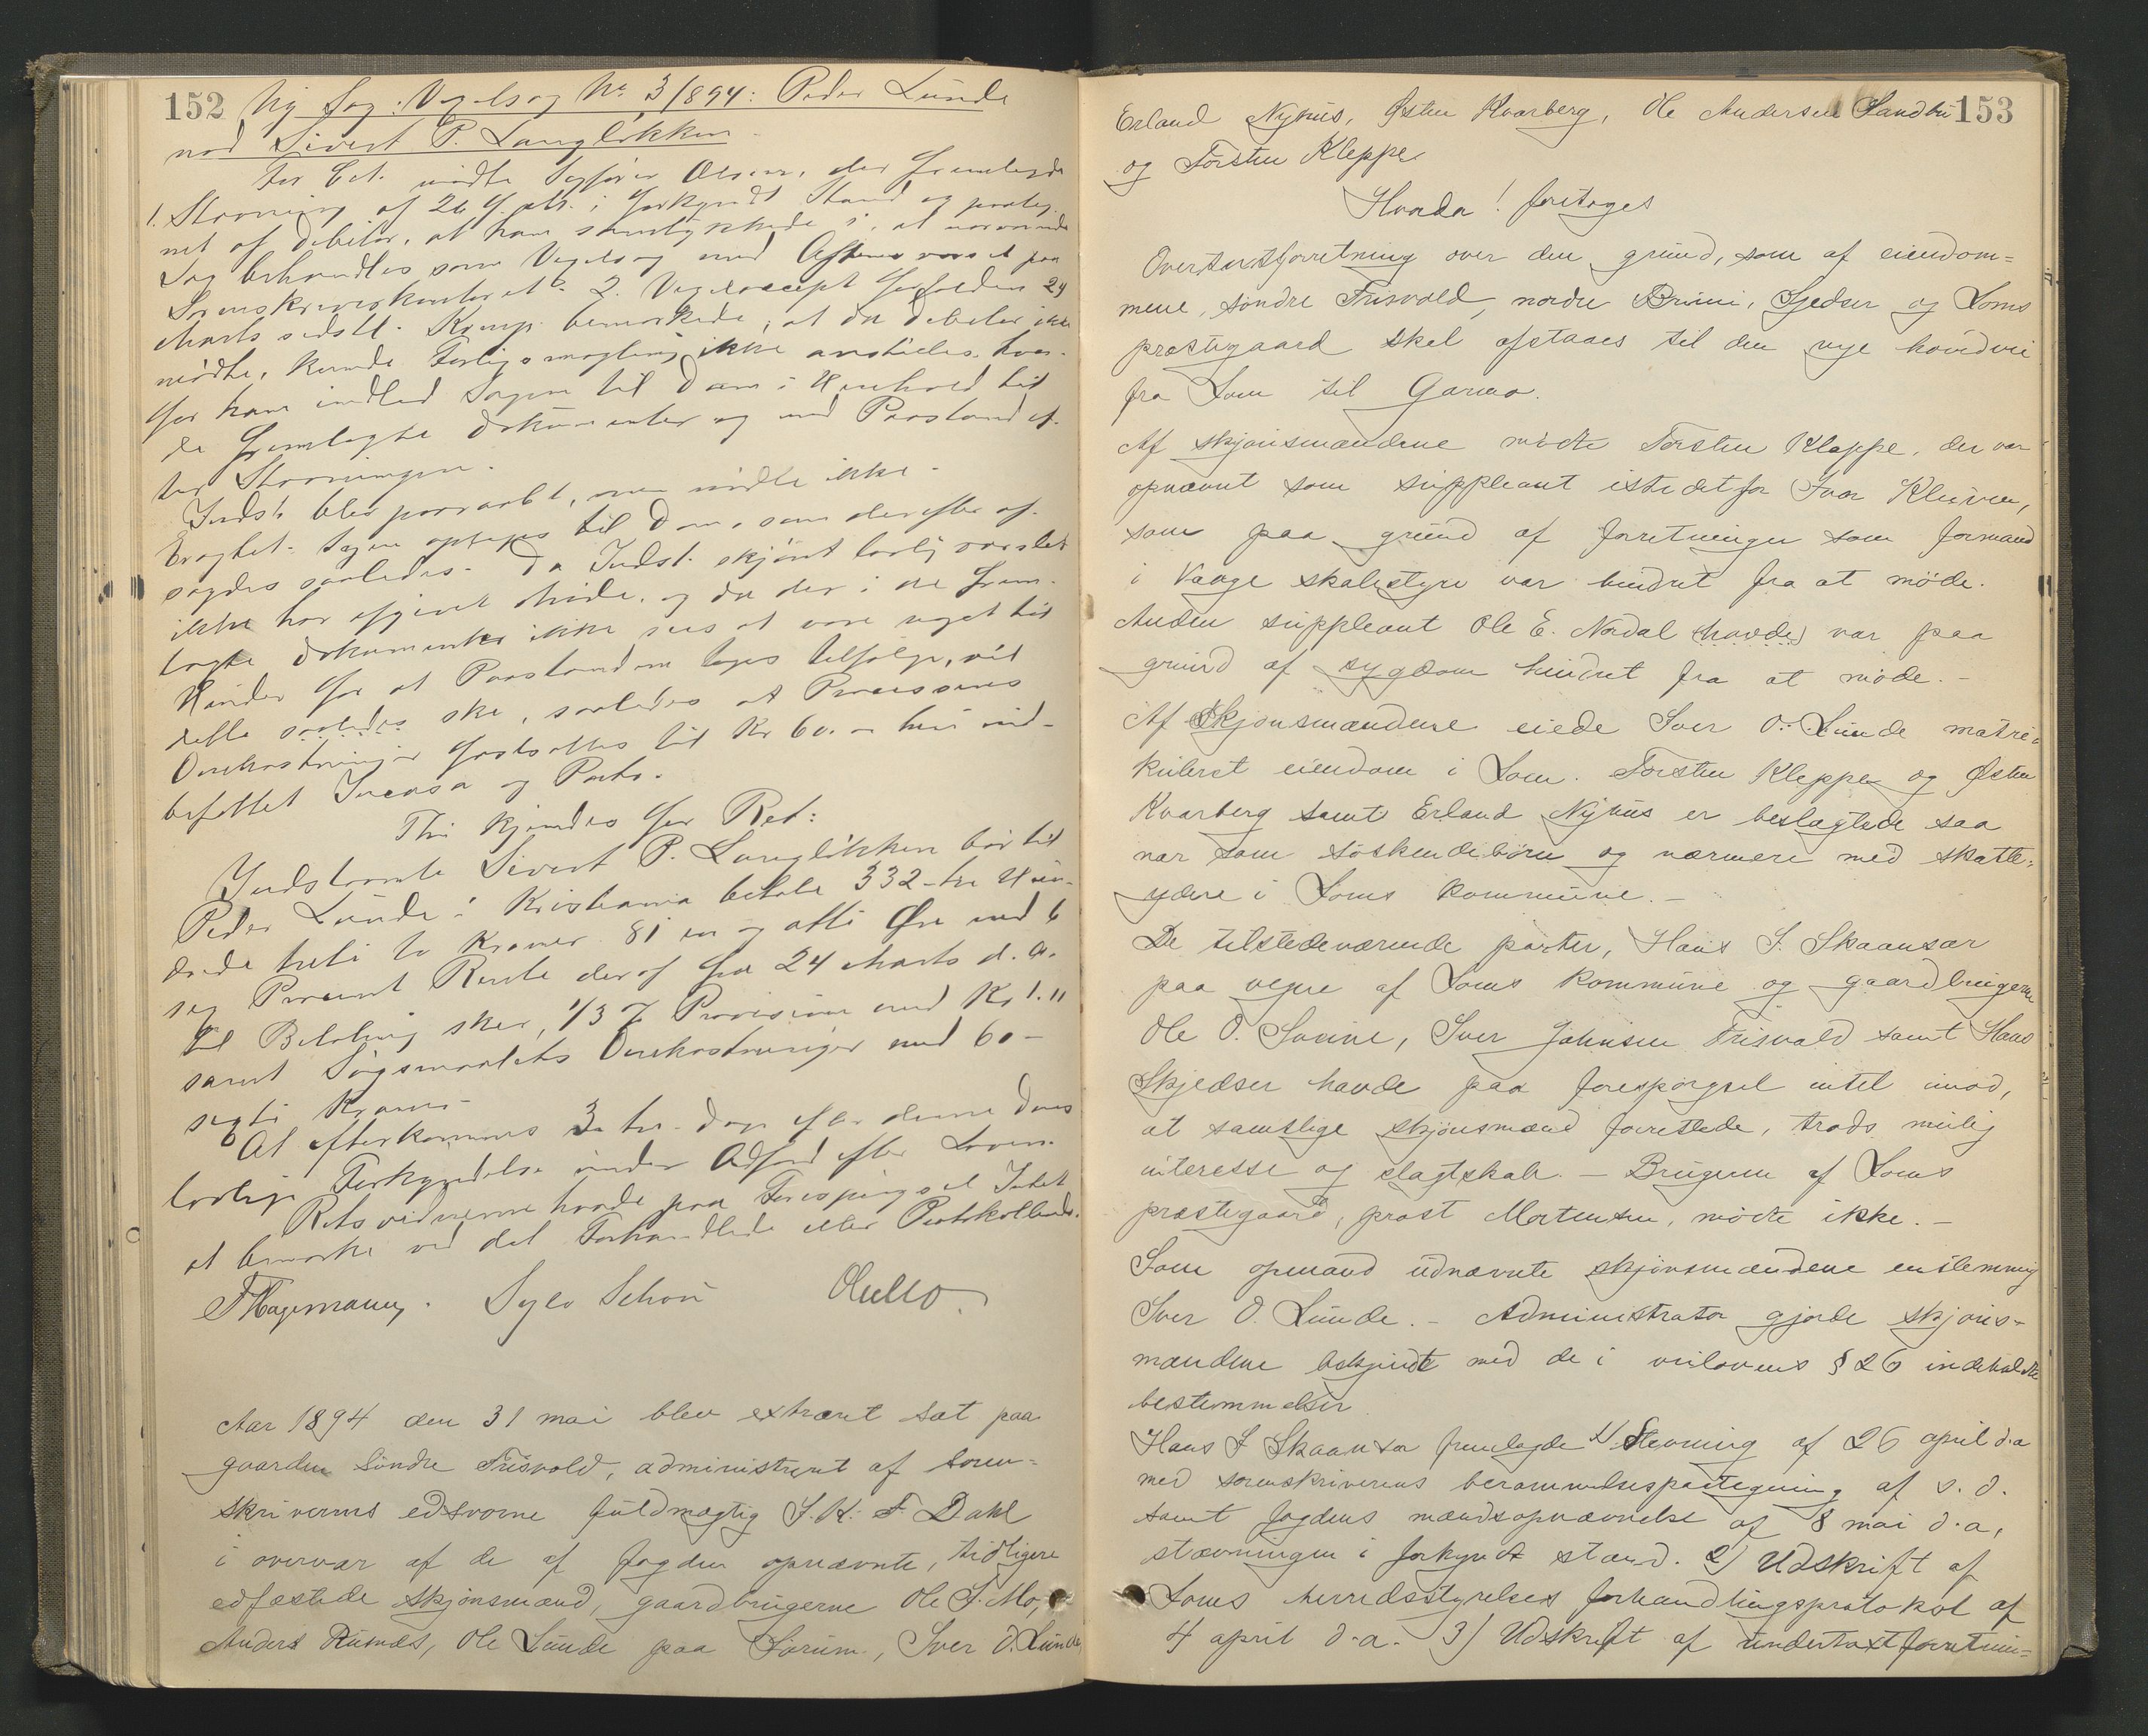 152 Ny Sag: Vexelsag No 3/1894: Peder Lunde
mod Sivert P. Langløkken
For Cit. mødte Sagfører Olsen, der fremlagde
1. Stævning af 26 f. M. i forkyndt Stand og paateg-
net af Debitor, at han samtykkede i, at nærværende
Sag behandles som Vexelsag med Aftens varsel paa
Sorenskriverkontoret. 2. Vexelaccept forfalden 24
Marts sidstl. Komp. bemærkede, at da Debitor ikke
mødte, kunde Forligsmægling ikke anstilles, hvor-
for han indlod Sagen til Dom i Henhold til
de fremlagte Dokumenter og med Paastand ef-
ter Stævningen.
Indst. blev paaraabt, men mødte ikke.
Eragtet: Sagen optages til Dom, som derefter af-
sagdes saaledes: Da Indst. skjønt lovlig varslet
ikke har afgivet Møde, og da der i de frem-
lagte Dokumenter ikke sees at være noget til
Hinder for at Paastanden tages tilfølge, vil
dette saaledes ske, saaledes at Processens
Omkostninger fastsættes til Kr 60.- heri ind-
befattet Incasso og Porto.
Thi kjendes for Ret:
Indstævnte Sivert P. Langløkken bør til
Peder Lunde i Kristiania betale 332 - tre Hun-
drede treti to Kroner 81 en og otti Øre med 6
sex Procent Rente deraf fra 24 Marts d. A.
til Betaling sker, 1/3 % Provision med Kr 1.11
samt Søgsmaalets Omkostninger med 60-
sexti Kroner.
At efterkommes 3 tre Dage efter denne Doms
lovlige Forkyndelse under Adfærd efter Loven.
Retsvidnerne havde paa Forespørgsel Intet
at bemærke ved det Forhandlede eller Protokollerede.
F Hagemann. Sylv Schou OleMo.
Aar 1894 den 31 mai blev extraret sat paa
gaarden Søndre Frisvold, administreret af soren-
skriverens edsvorne fuldmægtig J. K. F. Dahl
i overvær af de af fogden opnævnte, tidligere
edfæstede skjønsmænd, gaardbrugerne Ole J. Mo,
Anders Ramæs, Ole Lunde paa Sørum, Iver O. Lunde,
153
Erland Nyhus, Østen Kvarberg, Ole Andersen Sandbu
og Torsten Kleppe.
Hvorda! foretoges
Overtaxtforretning over den grund, som af eiendom-
mene, søndre Frisvold, nordre Brimi, Sjedser og Loms
præstegaard skal afstaaes til den nye hovedvei
fra Lom til Garmo.
Af skjønsmændene mødte Torsten Kleppe, der var
opnævnt som suppleant istedetfor Ivar Kleiven,
som paa grund af forretninger som formand
i Vaage skolestyre var hindret fra at møde.
Anden suppleant Ole E. Nordal (havde) var paa
grund af sygdom hindret fra at møde. -
Af Skjønsmændene eiede Iver O. Lunde matri-
kuleret eiendom i Lom. Torsten Kleppe og Østen
Kvarberg samt Erland Nyhus er beslægtede saa
nær som søskendebørn og nærmere med skatte-
ydere i Loms kommune. -
De tilstedeværende parter, Hans J. Skaansar
paa vegne af Loms kommune og gaardbrugerne
Ole O. Sveine, Iver Johnsen Frisvold samt Hans
Skjedser havde paa forespørgsel intet imod,
at samtlige skjønsmænd forrettede, trods mulig
interesse og slægtskab. - Brugeren af Loms
præstegaard, prost Mortensen, mødte ikke. -
Som opmand udnævnte skjønsmændene enstemmig
Iver O. Lunde. - Administrator gjorde skjøns-
mændene bekjendt med de i veilovens § 26 indeholdte
bestemmelser
Hans J Skaansar fremlagde 1/ Stevning af 26 april d.a
med sorenskriverens berammelsespaategning af s. d.
samt fogdens mændsopnævnelse af 8 mai d.a,
stævningen i forkyndt stand. 2) Udskrift af
Loms herredsstyrelses forhandlingsprotokol af
4 april d.a. 3) Udskrift af undertaxtforretnin-